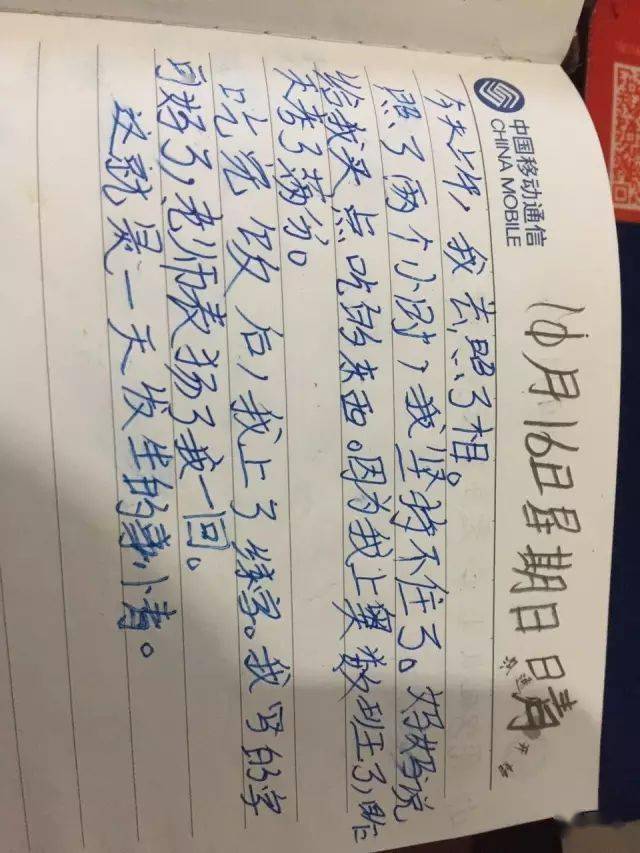 中国移动通信
CHINA MOBILE
10月16日星期日 晴
今天上午，我去照了相。
照了两个小时，我坚持不住了。妈妈说
给我买点吃的东西。因为我上奥数班了，昨
天考了满分。
吃完饭后，我上了练字。我写的字
可好了，老师表扬了我一回。
这就是一天发生的事小青。